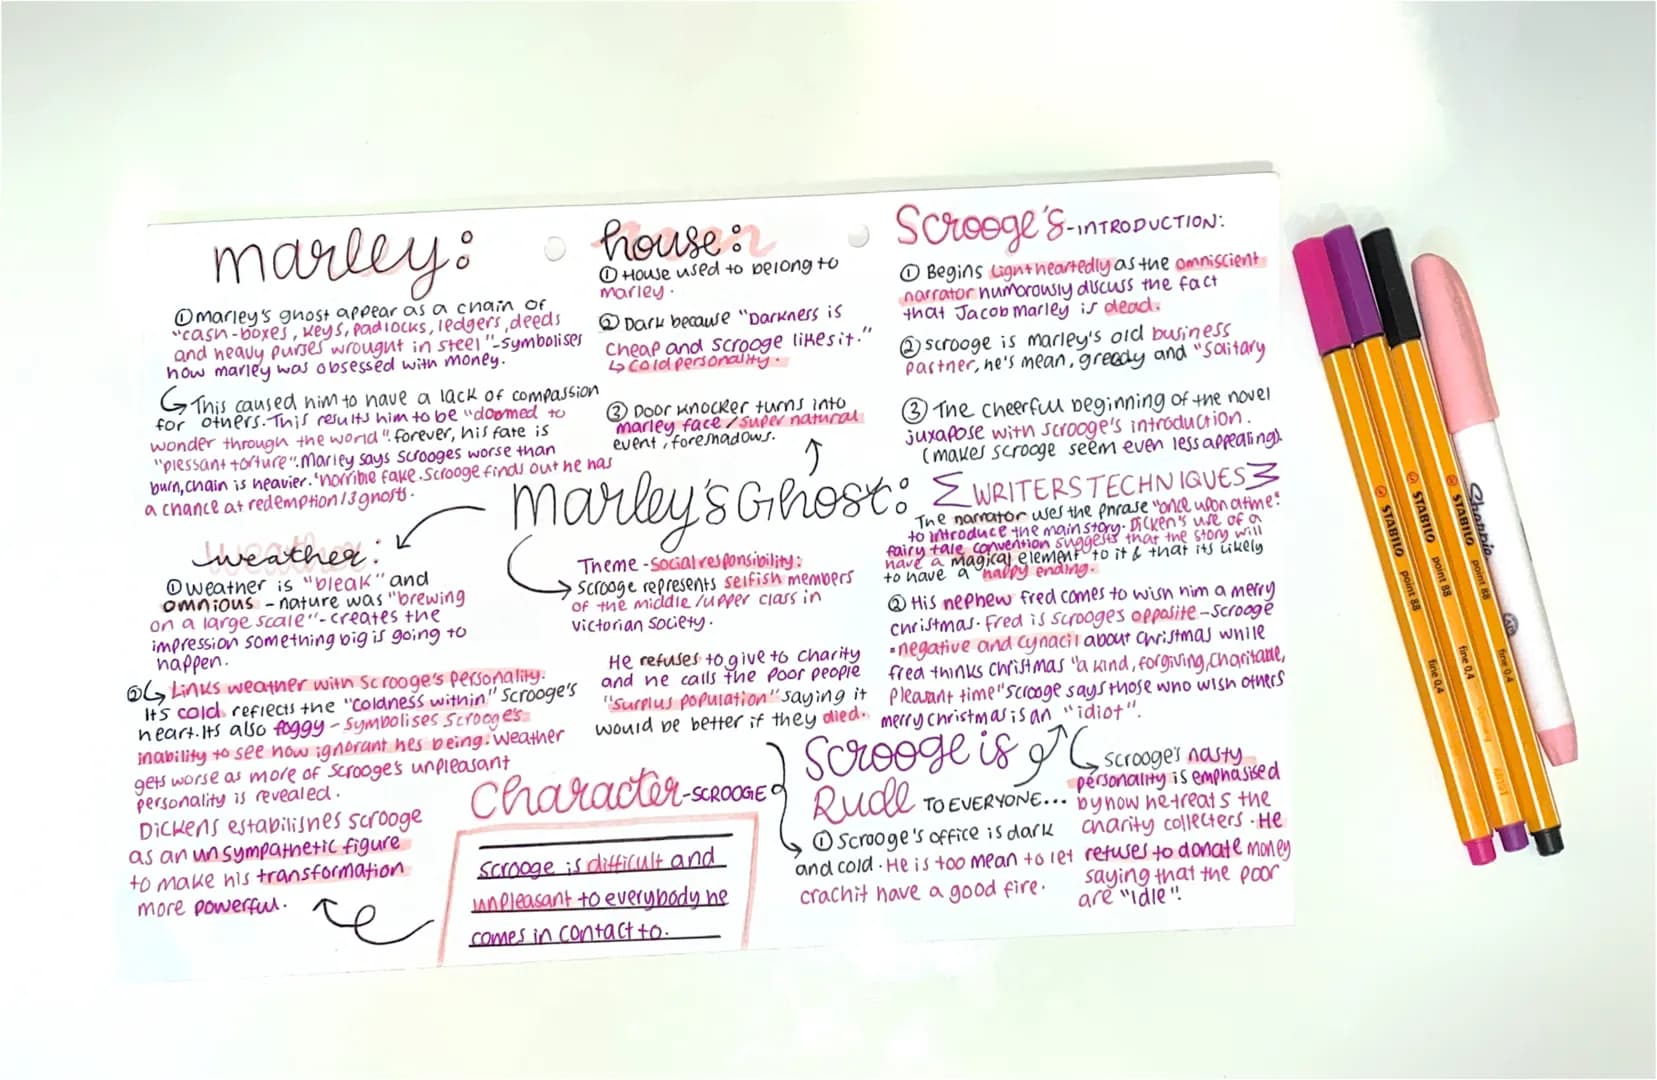 marley:
①marley's ghost appear as a chain of
"cash-boxes, keys, padlocks, ledgers, deeds
and heavy purses wrought in steel"-symbolises
how marley was obsessed with money.
This caused him to have a lack of compassion
for others. This results him to be "doomed to
wonder through the world". forever, his fate is
"plessant torture". Marley says scrooges worse than
burn, chain is heavier. "horrible fake. Scrooge finds out he has
a chance at redemption/3 ghosts.
house:
① House used to belong to
marley.
② Dark because "Darkness is
cheap and Scrooge likes it."
↳ cold personality.
③ Door knocker turns into
marley face/super natural
event, foreshadows.
Scrooge's-INTRODUCTION:
① Begins lightheartedly as the omniscient
narrator humorously discuss the fact
that Jacob marley is dead.
② scrooge is marley's old business
partner, he's mean, greedy and "Solitary
③ The cheerful beginning of the novel
juxapose with scrooge's introduction.
(makes scrooge seem even less appealing).
Marley's Ghost:
weather:
①weather is "bleak" and
omnious - nature was "brewing
on a large scale"-creates the
impression something big is going to
happen.
②↳ Links weather with Scrooge's personality.
Its cold reflects the "coldness within" scrooge's
heart. Its also foggy - symbolises scrooge's
inability to see how ignorant hes being. weather
gets worse as more of Scrooge's unpleasant
personality is revealed.
Dickens estabilishes scrooge
as an unsympathetic figure
to make his transformation
more powerful.
Theme -Social responsibility:
Scrooge represents selfish members
of the middle/upper class in
victorian society.
He refuses to give to charity
and he calls the poor people
"Surplus population" saying it
would be better if they died.
WRITERS TECHNIQUES
The narrator uses the phrase "once upon atime"
to introduce the main story. Dicken's use of a
fairy tale convention suggests that the story will
have a magical element to it & that its likely
to have a happy ending.
② His nephew fred comes to wish him a merry
christmas. Fred is scrooges opposite - scrooge
negative and cynacil about christmas while
fred thinks christmas "a kind, forgiving, charitable,
pleasant time" scrooge says those who wish others
merry christmas is an "idiot".
Character-SCROOGE
scrooge is difficult and
unpleasant to everybody he
comes in contact to.
Scrooge is
Rude TO EVERYONE...
① Scrooge's office is dark
and cold. He is too mean to let
crachit have a good fire.
Scrooge's nasty
personality is emphasised
by how he treats the
charity collecters. He
refuses to donate money
saying that the poor
are "idle".
STABILO point 88 fine 0,4
STABILO point 88 fine 0,4
STABILO point 88 fine 0,4
Sharpie